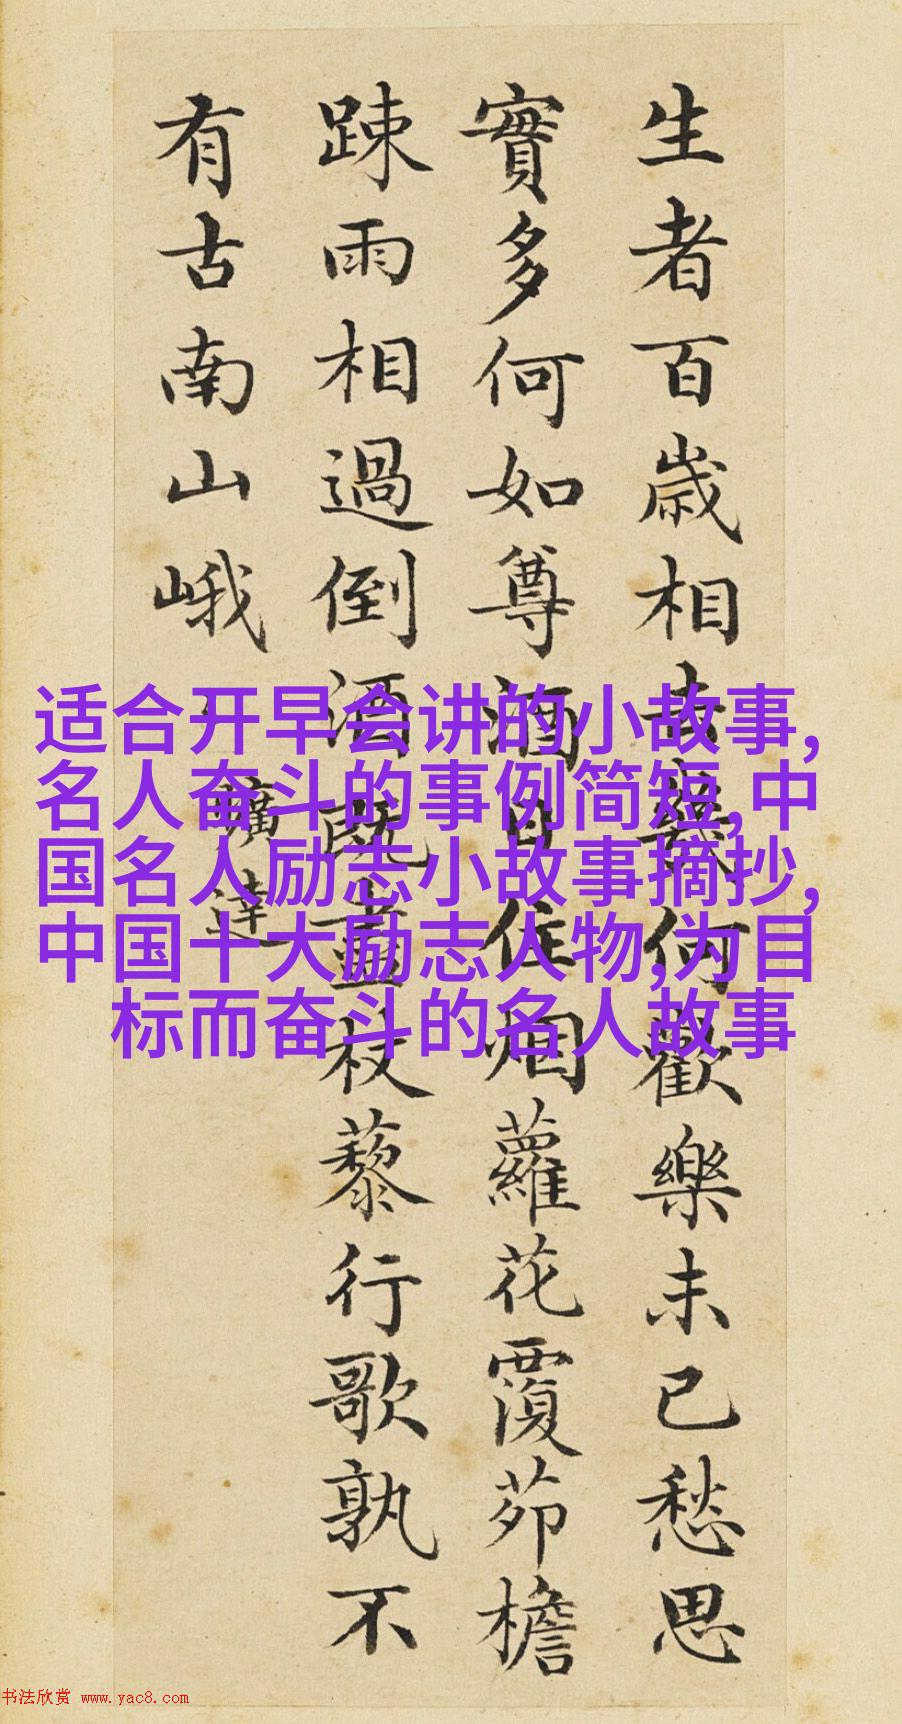 生者百歲相去幾何歡樂未已愁思
實多何如尊酒日往烟蘿花覆茆檐
踈雨相過倒酒既盡杖藜行歌孰不
有古南山峨
曠達
适合开早会讲的小故事,
名人奋斗的事例简短,中
国名人励志小故事摘抄,
中国十大励志人物,为目
标而奋斗的名人故事
书法欣赏 www.yac8.com